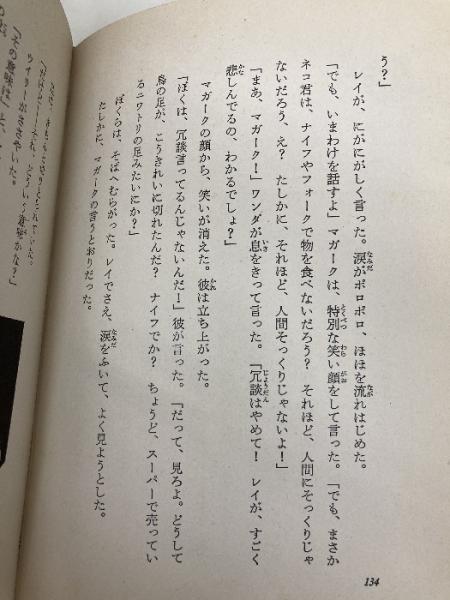 う？」
レイが、にがにがしく言った。涙がポロポロ、ほほを流れはじめた。
「でも、いまわけを話すよ」マガークは、特別な笑い顔をして言った。「でも、まさか
ネコ君は、ナイフやフォークで物を食べないだろう？　それほど、人間にそっくりじゃ
ないだろう、え？　たしかに、それほど、人間そっくりじゃないよ！」
「まあ、マガーク！」ワンダが息をきって言った。「冗談はやめて！　レイが、すごく
悲しんでるの、わかるでしょ？」
マガークの顔から、笑いが消えた。彼は立ち上がった。
「ぼくは、冗談言ってるんじゃないんだ！」彼が言った。「だって、見ろよ。どうして
鳥の足が、こうきれいに切れたんだ？　ナイフでか？　ちょうど、スーパーで売ってい
るニワトリの足みたいにか？」
ぼくらは、そばへむらがった。レイでさえ、涙をふいて、よく見ようとした。
たしかに、マガークの言うとおりだった。
134
ウイリーがささやいた。
「その意味は」と、